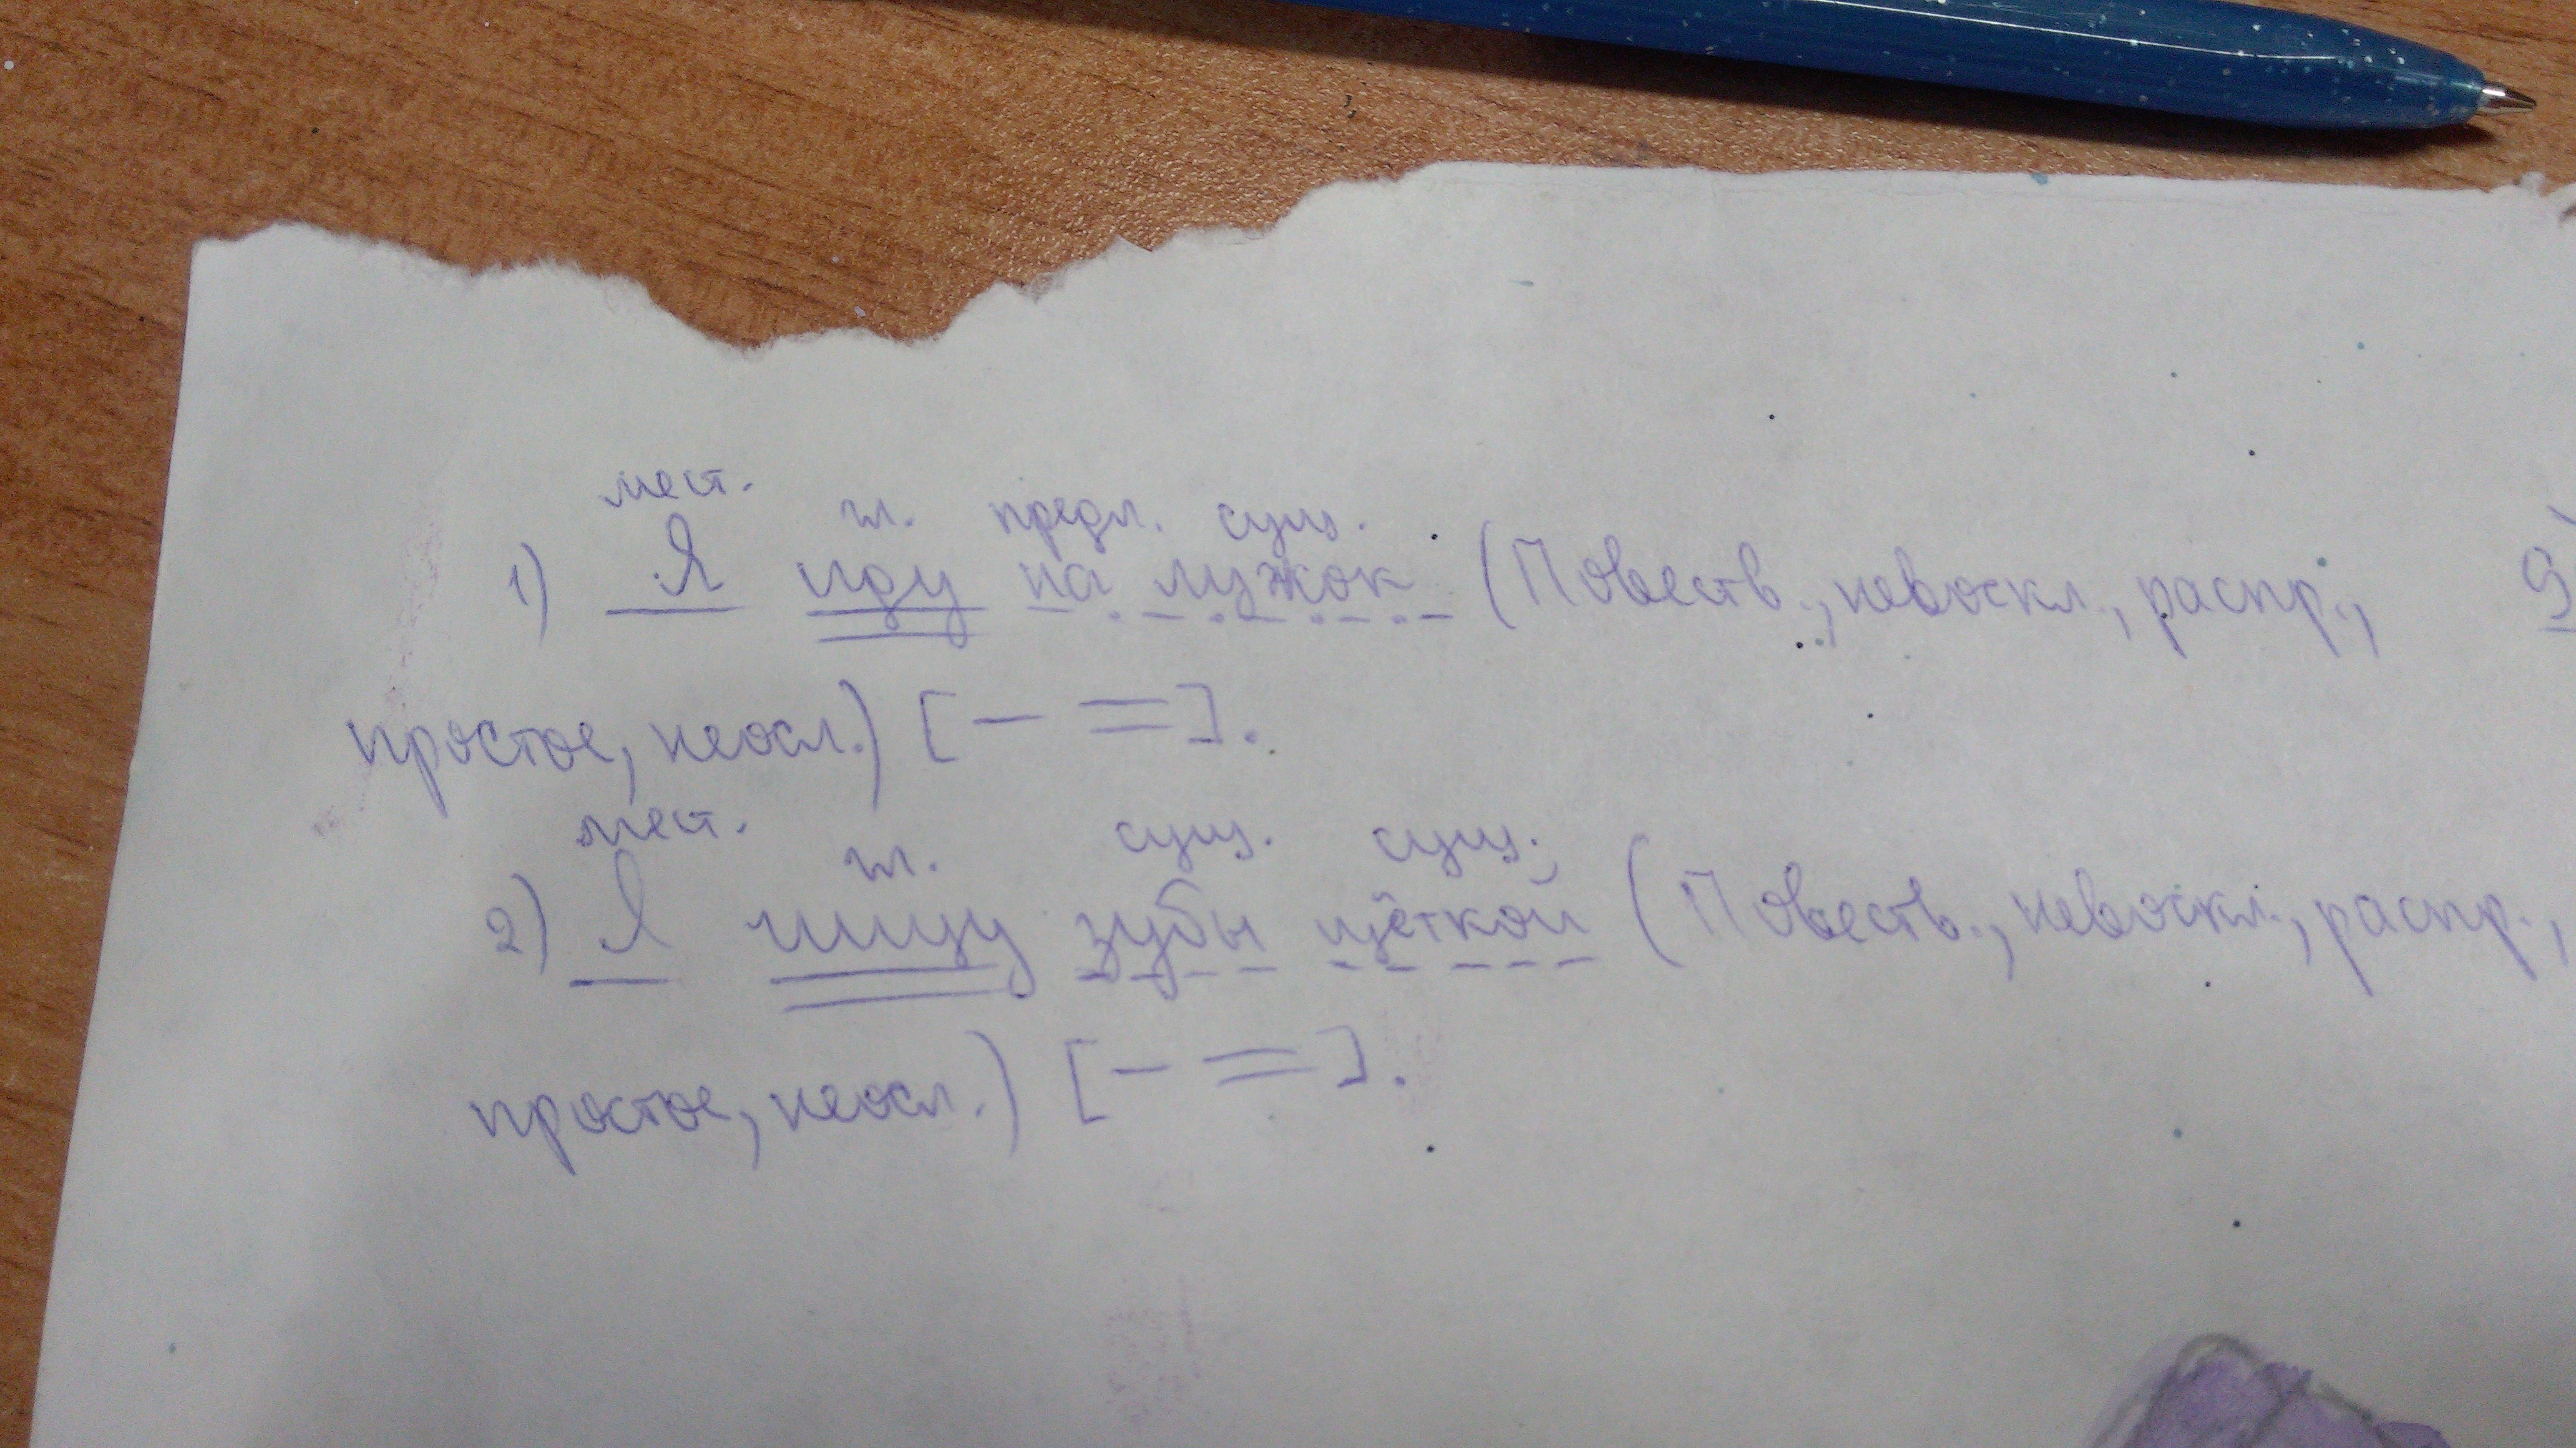 мест. гл. предл. сущ.
1) Я иду на лужок (Повеств., невоскл., распр.,
простое, неосл.) [– =].
мест. гл. сущ. сущ.
2) Я чищу зубы щёткой (Повеств., невоскл., распр.,
простое, неосл.) [– =].